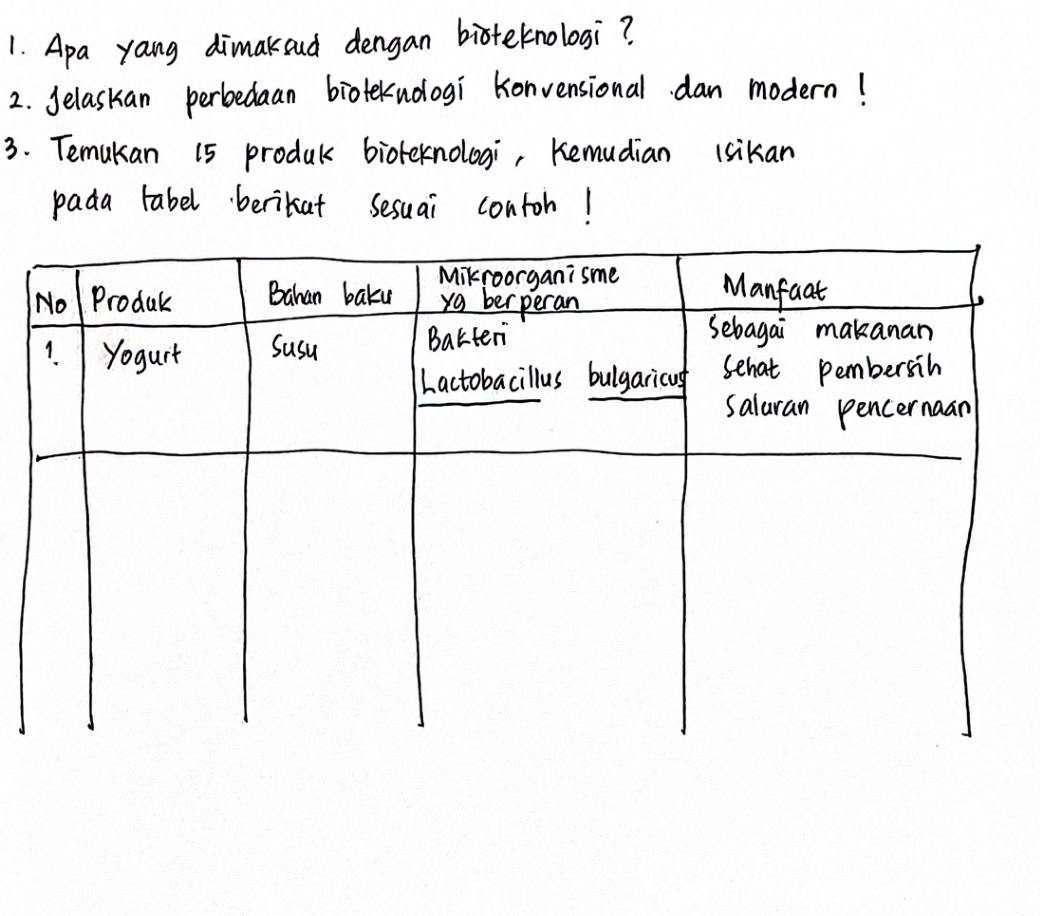 1. Apa yang dimaksud dengan bioteknologi ?
2. Jelaskan perbedaan bioteknologi konvensional dan modern !
3. Temukan 15 produk bioteknologi, kemudian isikan
pada tabel berikut sesuai contoh !
No Produk Bahan baku Mikroorganisme yg berperan Manfaat
1. Yogurt Susu Bakteri Sebagai makanan
Lactobacillus bulgaricus sehat pembersih
saluran pencernaan